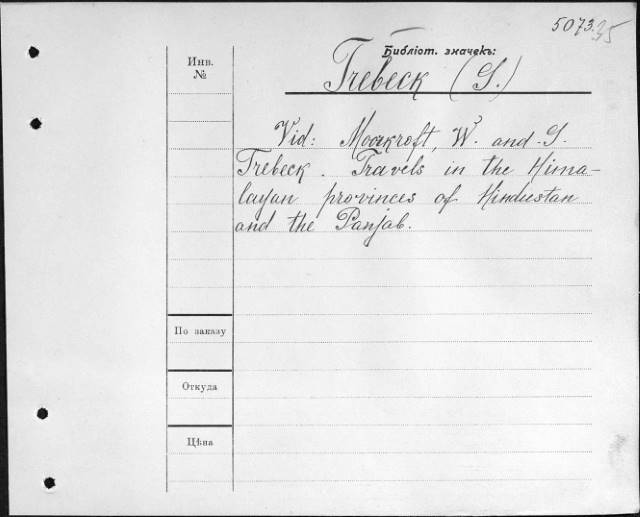 5073.35
Библіот. значекъ:
Инв.
№
Trebeck (G.)
Vid: Moorkroft, W. and G.
Trebeck. Travels in the Hima-
layan provinces of Hindustan
and the Panjab.
По заказу
Откуда
Цѣна